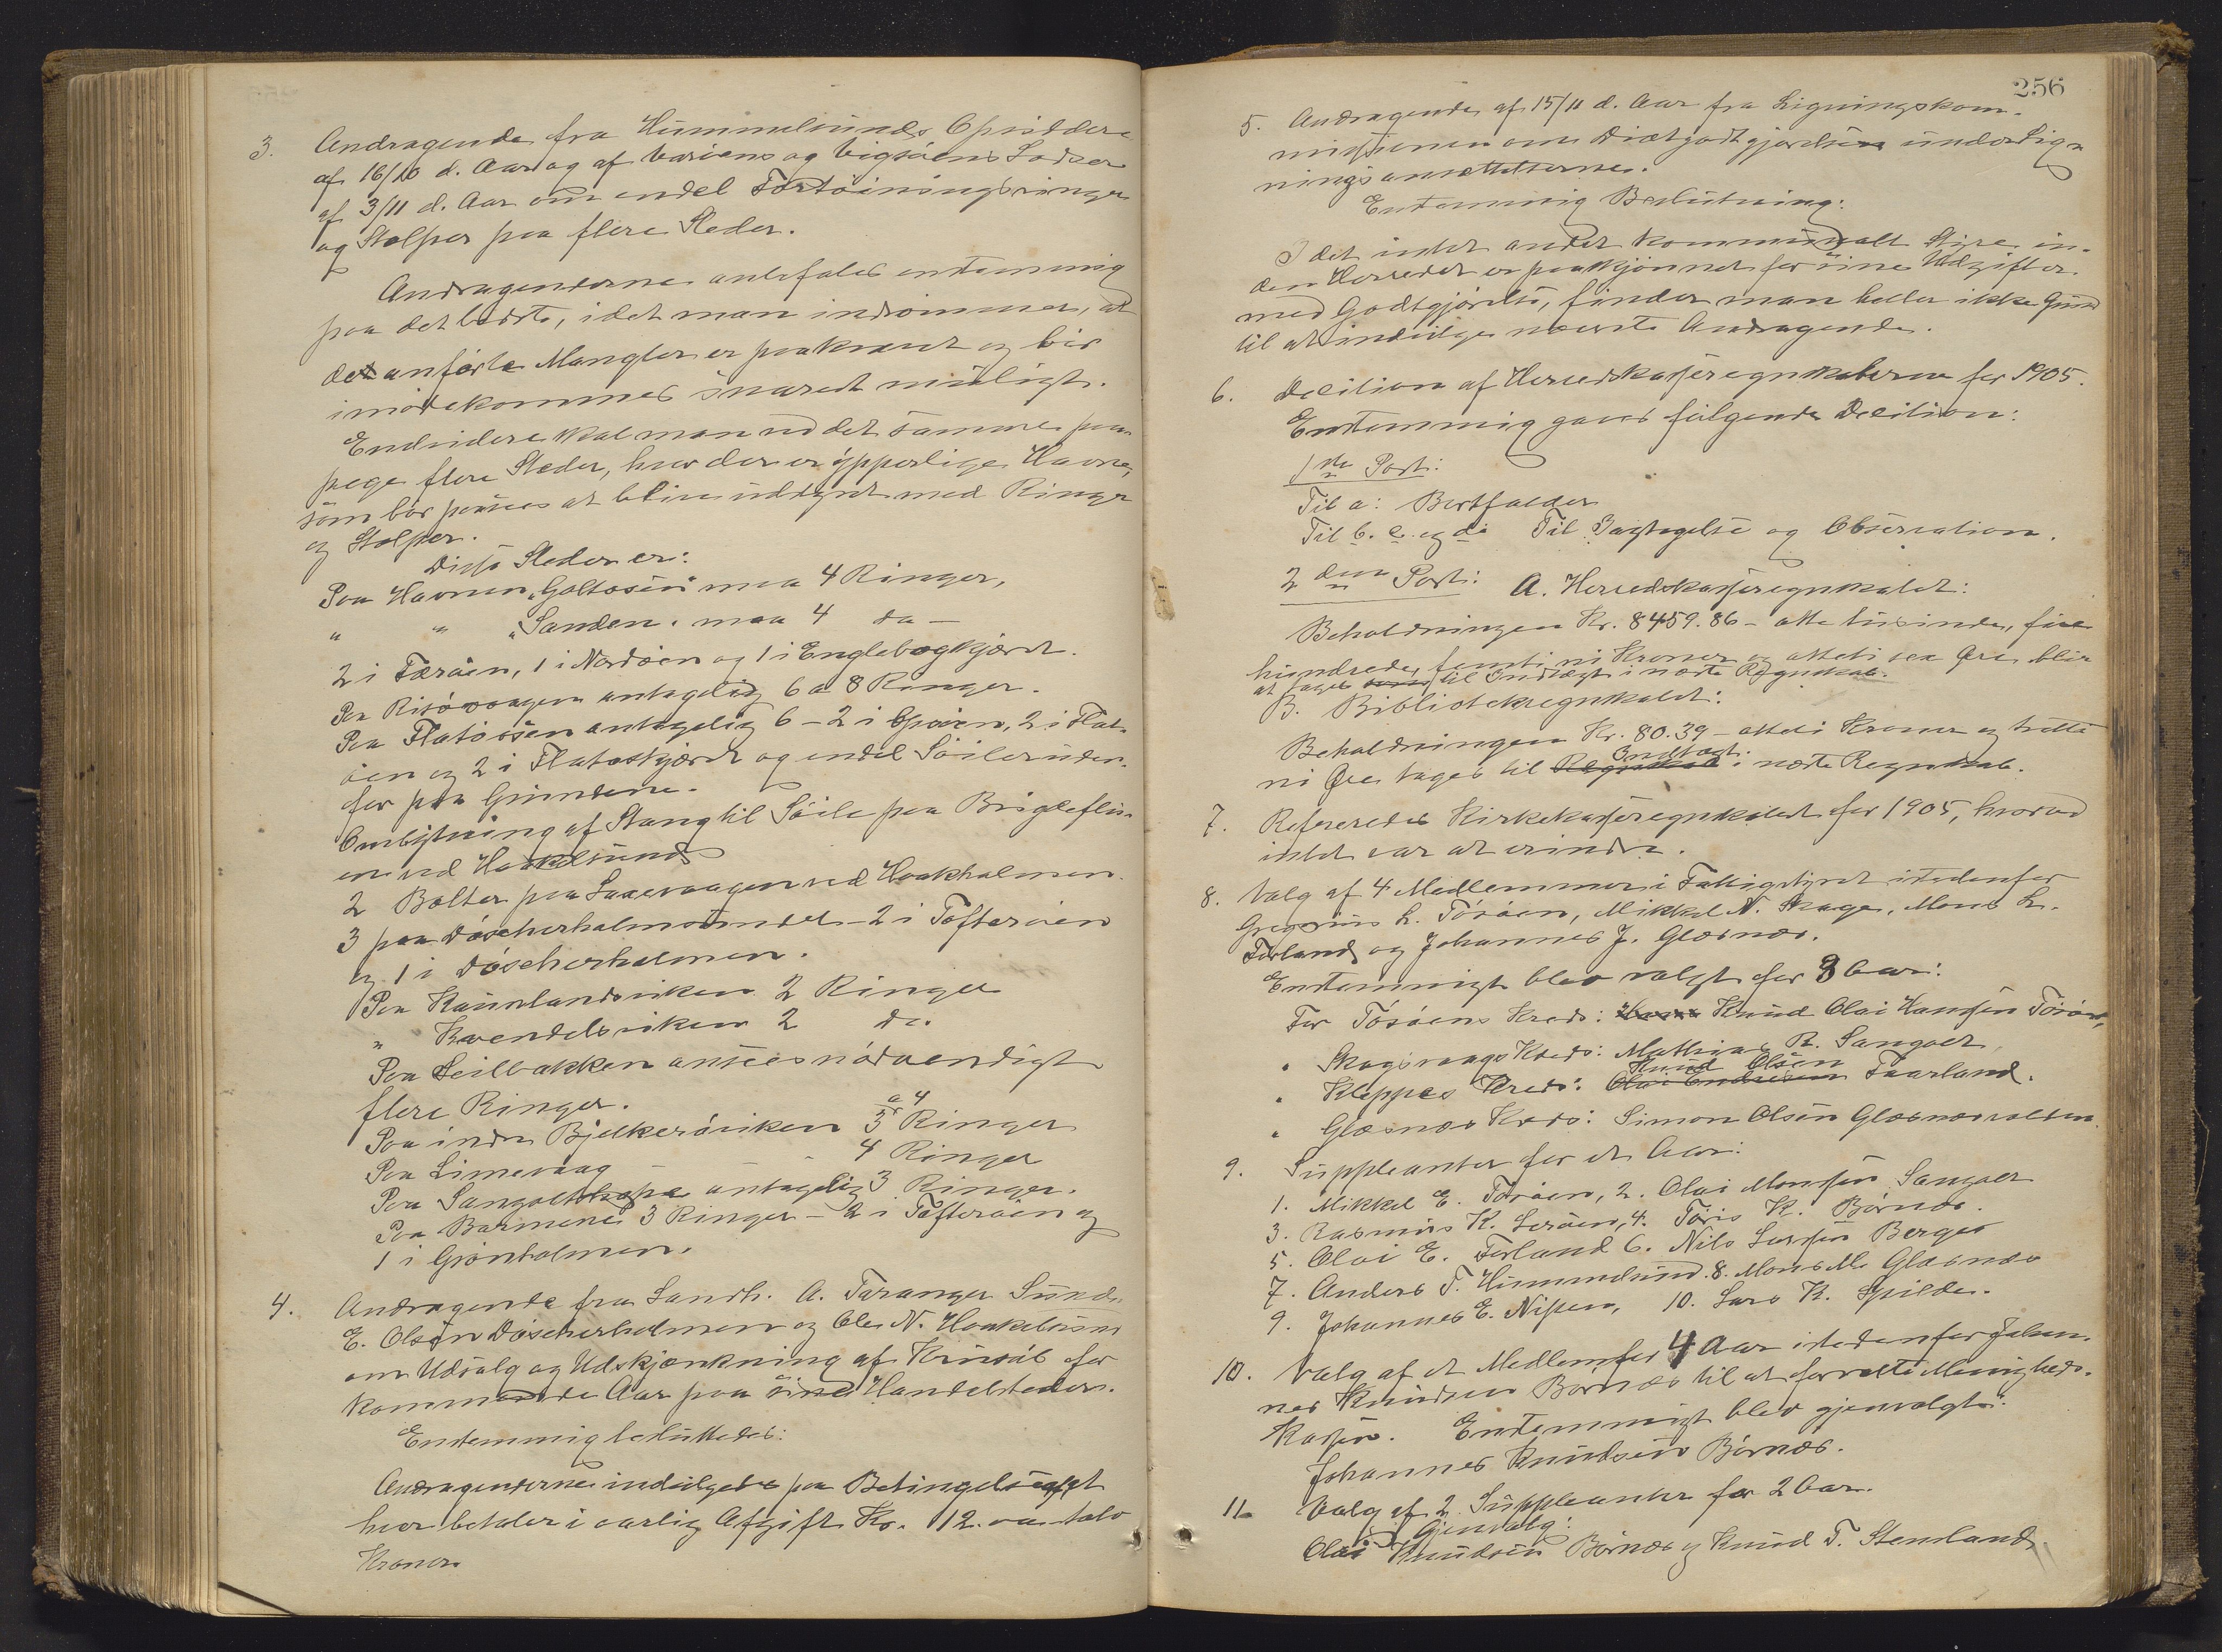 3. Andragende fra Hummelsunds Opsiddere
af 16/10 d. Aar og af Varöens og Vigsöens Lodser
af 3/11 d. Aar om endel Fortöiningsringer
og Stolper paa flere Steder.
Andragenderne anbefales enstemmig
paa det bedste, idet man indrömmer, at
det anförte Mangler er paakrævet og bör
imödekommes snarest muligt.
Endvidere skal man ved det samme paa-
pege flere Steder, hvor der er ypperlige Havne,
som bör paasees at blive udstyret med Ringer
og Stolper.
Disse Steder er:
Paa Havnen „Goltosen" maa 4 Ringer,
" " „Sanden" maa 4 do –
2 i Færöen, 1 i Nordöen og 1 i Englebogskjæret.
Paa Risövaagen antagelig 6 a 8 Ringer.
Paa Flatöosen antagelig 6 – 2 i Spöien, 2 i Flat-
öen og 2 i Flatoskjæret og endel Söiler uden-
for paa Grundene.
Ombytning af Stang til Söile paa Brigleflu-
en ved Haakelsund
2 Bolter paa Laxevaagen ved Haakholmen.
3 paa Döscherholmsundet – 2 i Tofteröen
og 1 i Döscherholmen.
Paa Kausslandsviken 2 Ringer
" Kvendelsviken 2 do.
Paa Seilbakken ansees nödvendigt
flere Ringer.
a 4
Paa indre Bjelkeröviken 3 Ringer
Paa Limevaag – – 4 Ringer
Paa Sangolt antagelig 3 Ringer.
Paa Barmene 3 Ringer – 2 i Tofteröen og
1 i Grönholmen.
4. Andragende fra Landh. A. Taranger Sund,
E. Olsen Döscherholmen og Ole N. Haakelsund
om Udsalg og Udskjænkning af Krusöl for
kommende Aar paa sine Handelssteder.
Enstemmig besluttedes:
Andragenderne indvilgedes paa Betingelse af at
hver betaler i aarlig Afgift Kr. 12. – tolv
Kroner.
256
5. Andragende af 15/11 d. Aar fra Ligningskom-
missionen om Diætgodtgjörelsen under Lig-
ningsansættelserne.
Enstemmig Beslutning:
I det intet andet kommunalt Styre in-
den Herredet er paaskjönnet for sine Udgifter
med Godtgjörelse, finder man heller ikke Grund
til at indvilge nævnte Andragende.
6. Decition af Herredskasseregnskaberne for 1905.
Enstemmig gaves fölgende Decition:
1ste Post:
Til a: Bortfalder
Til b. c. og d: Til Iagtagelse og Observation.
2den Post: A. Herredskasseregnskabet:
Beholdningen Kr. 8459.86 – otte tusinde, fire
hundrede, femti ni Kroner og otteti sex Öre blir
at tages til Indtægt i næste Regnskab.
B. Bibliotekregnskabet:
Beholdningen Kr. 80.39 – otteti Kroner og tretti
Indtægt
ni Öre tages til Regnskab i næste Regnskab.
7. Refereredes Kirkekasseregnskabet for 1905, hvorved
intet var at erindre.
8. Valg af 4 Medlemmer i Fattigstyret istedenfor
Gregorius L. Tösöen, Mikkel N. Skage, Mons L.
Forland og Johannes J. Glesnæs.
Enstemmigt blev valgt for 3 Aar:
For Tösöens Kreds: Knud Olai Hansen Tösöen,
" Skogsvaags Kreds: Mathias R. Sangolt
Knud Olsen
" Kleppes Kreds: Olai Endresen Faarland.
" Glesnæs Kreds: Simon Olsen Glesnæsvolden.
9. Suppleanter for et Aar:
1. Mikkel E. Tösöen, 2. Olai Monsen Sangolt
3. Rasmus K. Leröen, 4. Töris K. Börnæs.
5. Olai E. Forland 6. Nils Larsen Berge
7. Anders T. Hummelsund. 8. Mons M. Glesnæs
9. Johannes E. Nipen, 10. Lars K. Spilde.
10. Valg af et Medlem for 4 Aar istedenfor Johan-
nes Knudsen Börnæs til at forvalte Menigheds-
kassen. Enstemmigt blev gjenvalgt:
Johannes Knudsen Börnæs.
11 Valg af 2 Suppleanter for 2 Aar.
Gjenvalg:
Olai Knudsen Börnæs og Knud T. Stenland